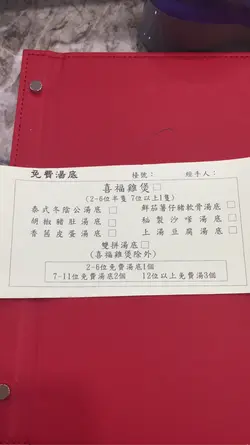 免費湯底 檯號： 經手人：
喜福雞煲□
(2-6位半隻 7位以上1隻)
泰式冬陰公湯底 □ 鮮茄薯仔豬軟骨湯底 □
胡椒豬肚湯底 □ 秘製沙嗲湯底 □
香茜皮蛋湯底 □ 上湯豆腐湯底 □
雙拼湯底□
(喜福雞煲除外)
2-6位免費湯底1個
7-11位免費湯底2個 12位以上免費湯3個